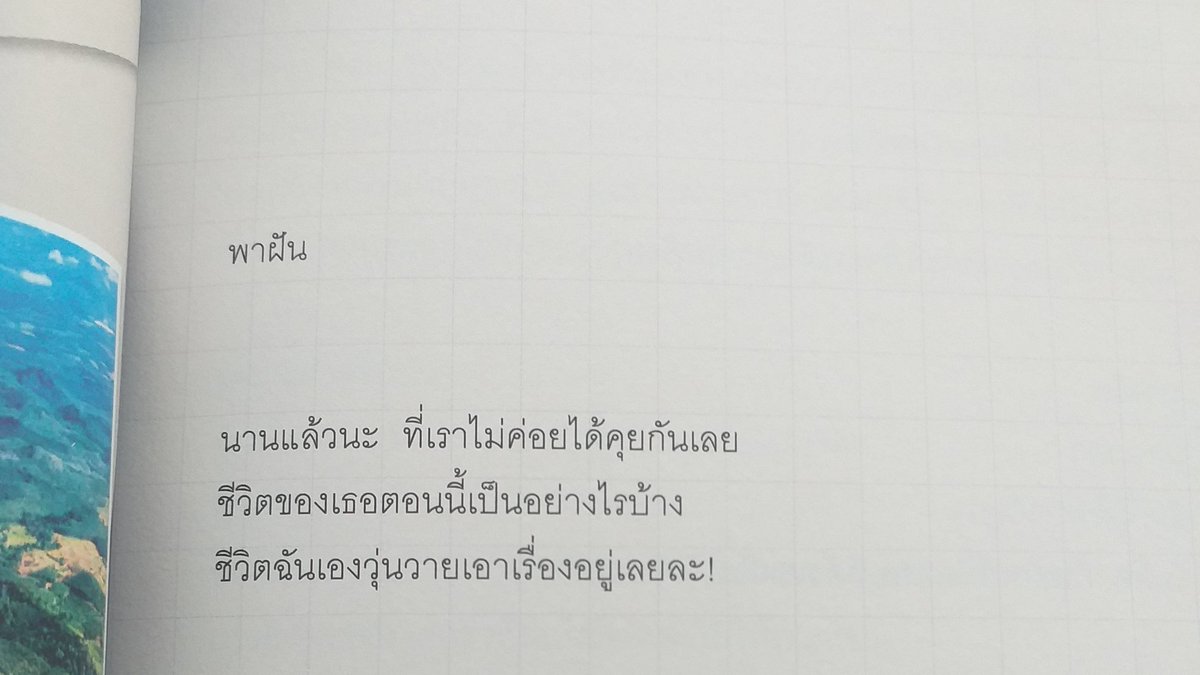 พาฝัน
นานแล้วนะ ที่เราไม่ค่อยได้คุยกันเลย
ชีวิตของเธอตอนนี้เป็นอย่างไรบ้าง
ชีวิตฉันเองวุ่นวายเอาเรื่องอยู่เลยละ!